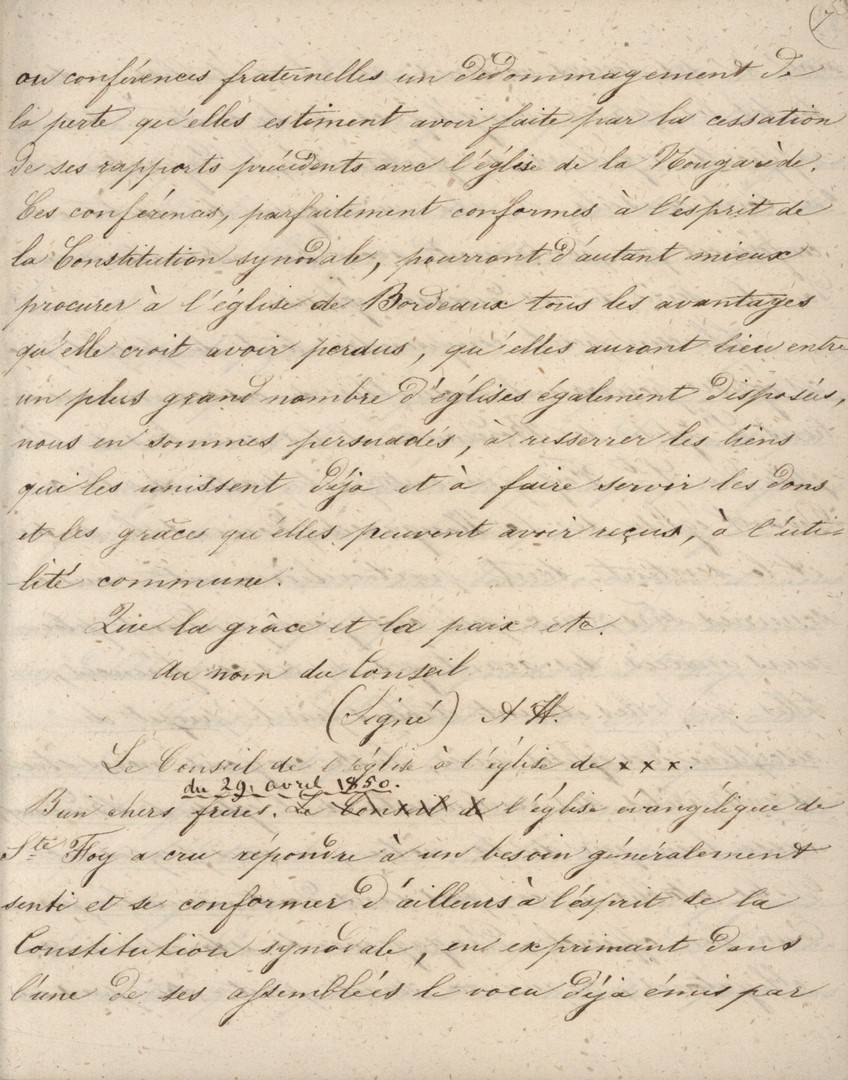 ou conférences fraternelles un dédommagement de
la perte qu'elles estiment avoir faite par la cessation
de ses rapports précédents avec l'église de la Nougarède.
Ces conférences, parfaitement conformes à l'esprit de
la Constitution synodale, pourront d'autant mieux
procurer à l'église de Bordeaux tous les avantages
qu'elle croit avoir perdus, qu'elles auront lieu entre
un plus grand nombre d'églises également disposées,
nous en sommes persuadés, à resserrer les liens
qui les unissent déjà et à faire servir les dons
et les grâces qu'elles peuvent avoir reçus, à l'uti-
-lité commune.
Que la grâce et la paix etc.
Au nom du Conseil
(Signé) A H.
Le Conseil de l'église à l'église de x x x.
du 29 avril 1850.
Bien chers frères. Le Conseil de l'église évangélique de
Ste Foy a cru répondre à un besoin généralement
senti et se conformer d'ailleurs à l'esprit de la
Constitution synodale, en exprimant dans
l'une de ses assemblées le voeu déjà émis par